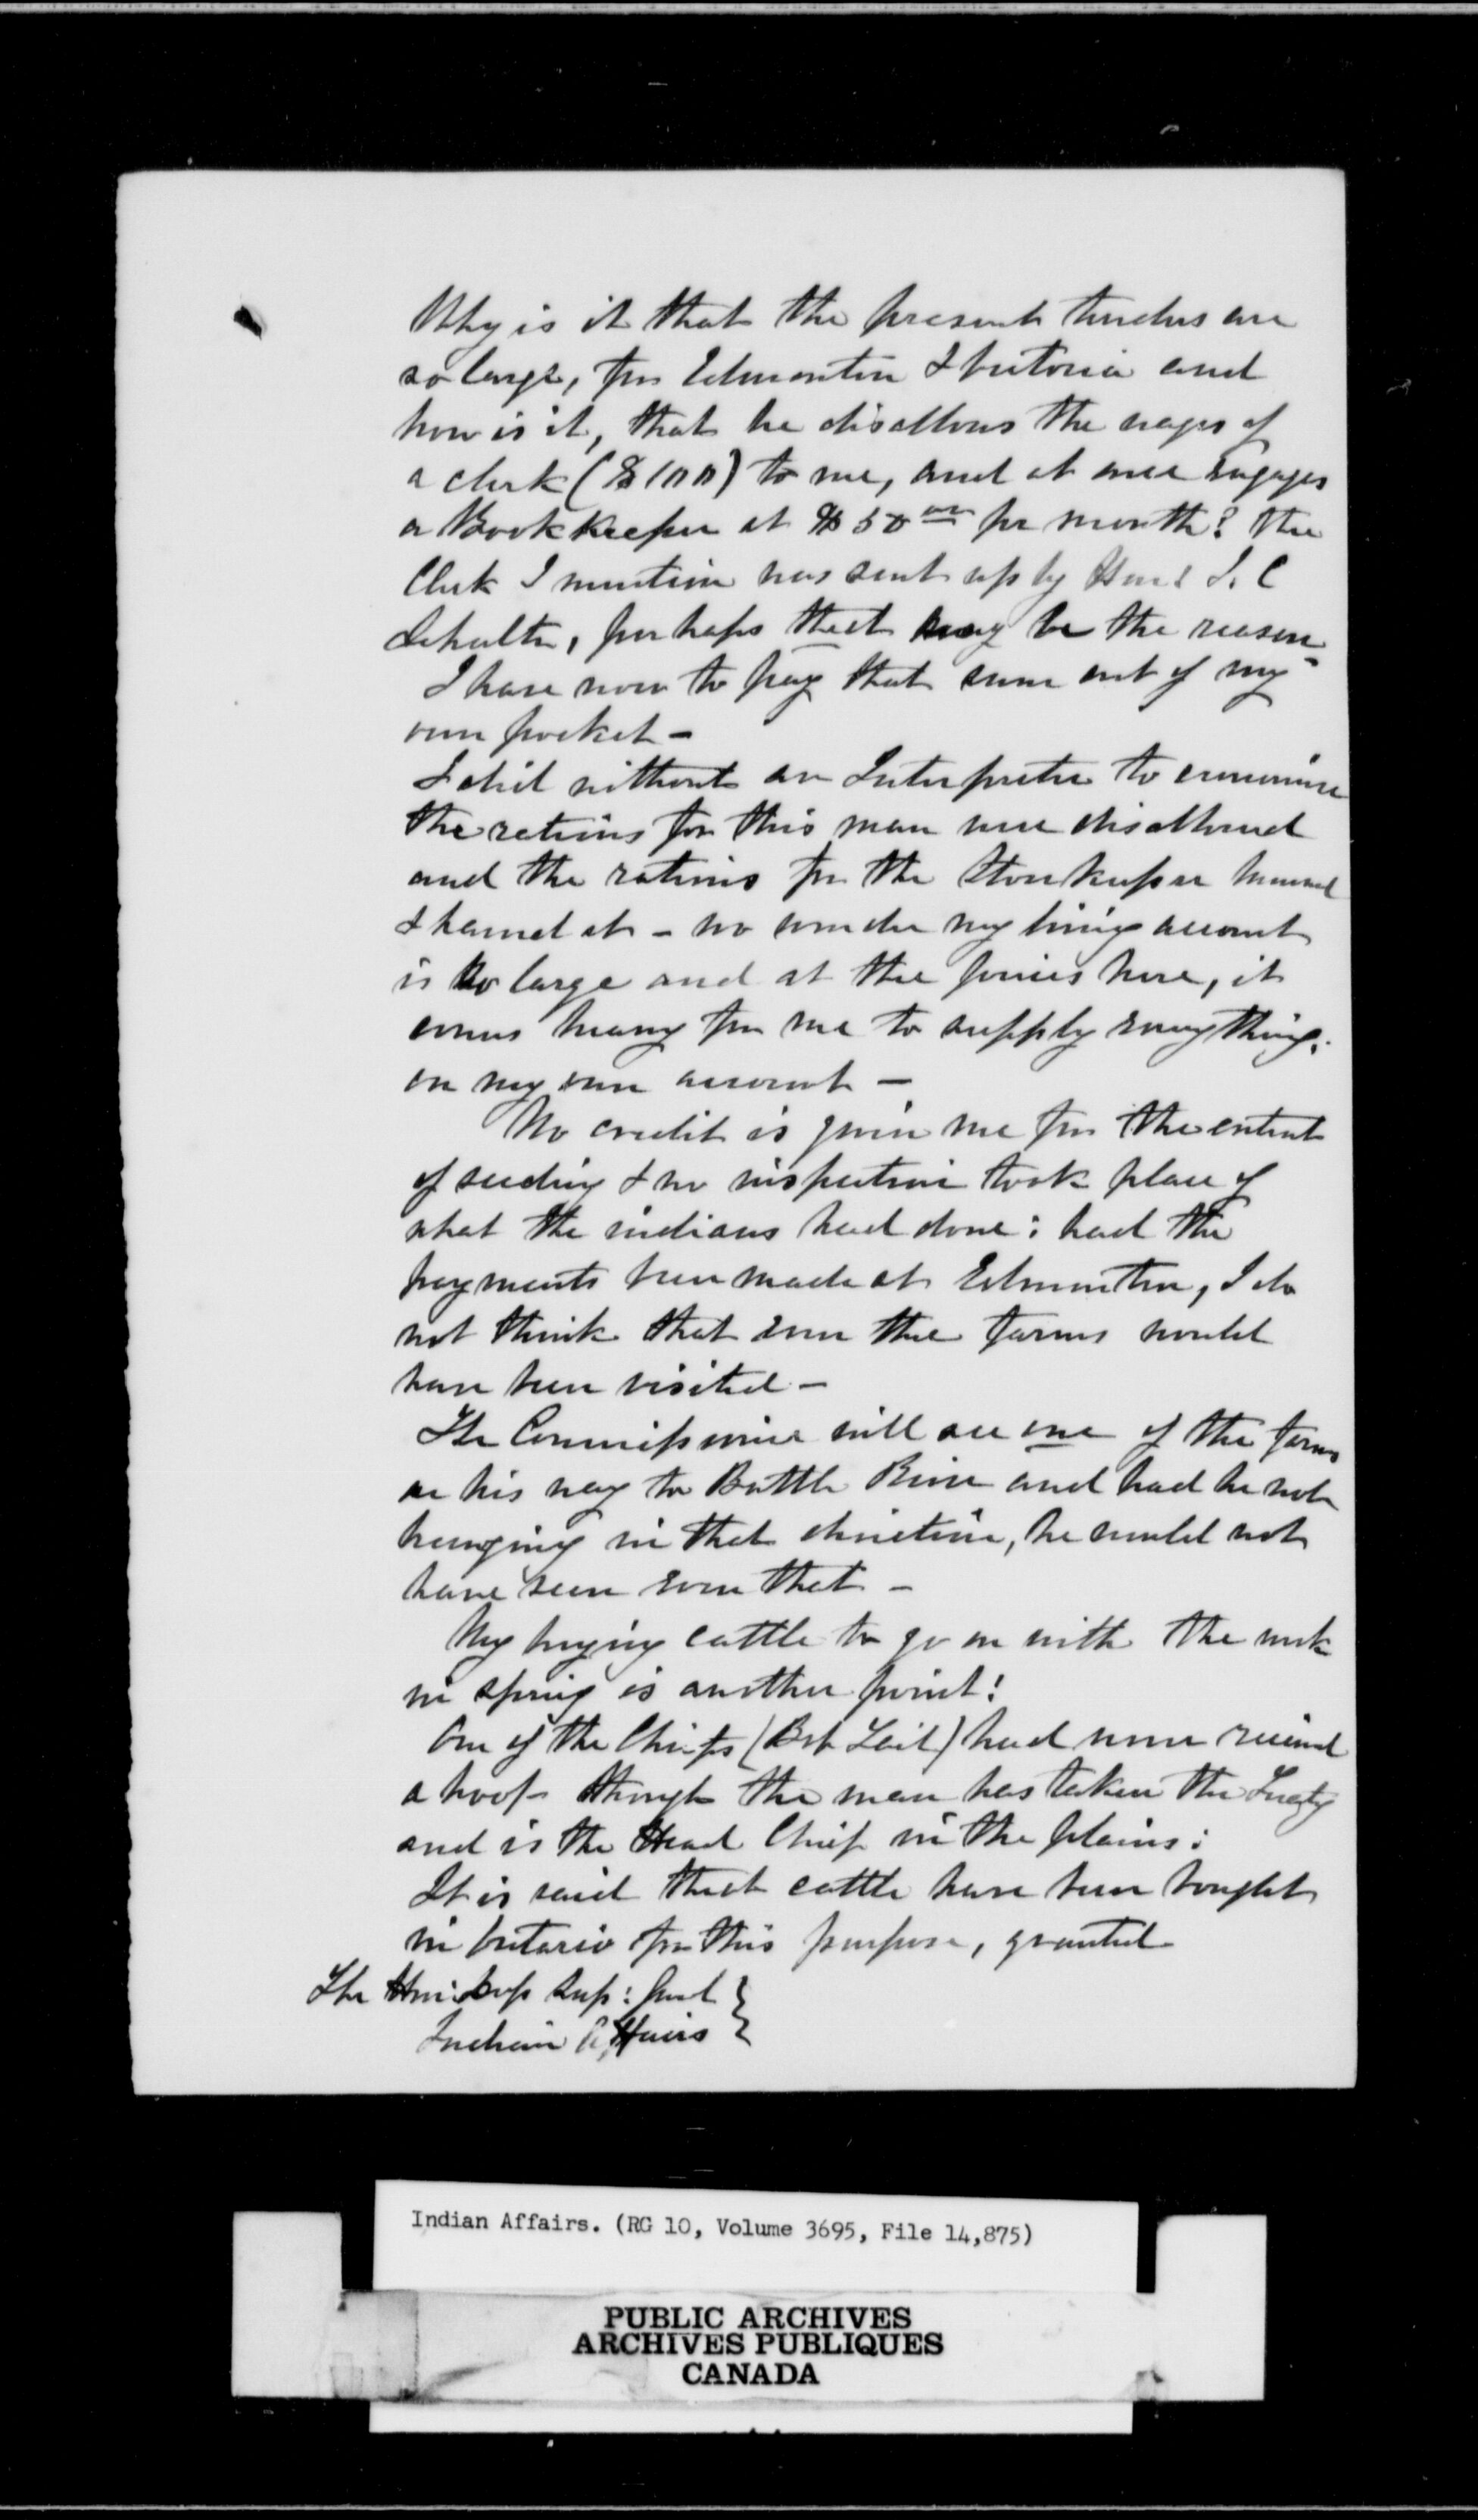 Why is it that the present tenders are
so large, for Edmonton & Victoria and
how is it, that he disallows the wages of
a clerk ($100) to me, and at once engages
a Bookkeeper at $50 00 per month? The
Clerk I mention was sent up by Hon: J. C
Schultz, perhaps that may be the reason
I have now to pay that sum out of my
own pocket -
I did without an Interpreter to economise
the rations for this man were disallowed
and the rations for the Storekeeper
& at - no wonder my living account
is so large and at the prices here, it
comes heavy for me to supply everything.
on my own account -
No credit is given me for the extent
of seeding & no inspection took place of
what the indians had done: had the
payments been made at Edmonton, I do
not think that even the farms would
have been visited -
The Commissioner will see one of the farms
on his way to Battle River and had he not
been going in that direction, he would not
have seen even that -
My buying cattle to go on with the work
in spring is another point!
One of the Chiefs (Bob Tail) had never received
a hoof though the man has taken the Treaty
and is the Head Chief in the plains:
It is said that cattle have been bought
in Ontario for this purpose, granted
The Hon: Dep Sup: Genl
Indian Affairs
Indian Affairs. (RG 10, Volume 3695, File 14,875)
PUBLIC ARCHIVES
ARCHIVES PUBLIQUES
CANADA